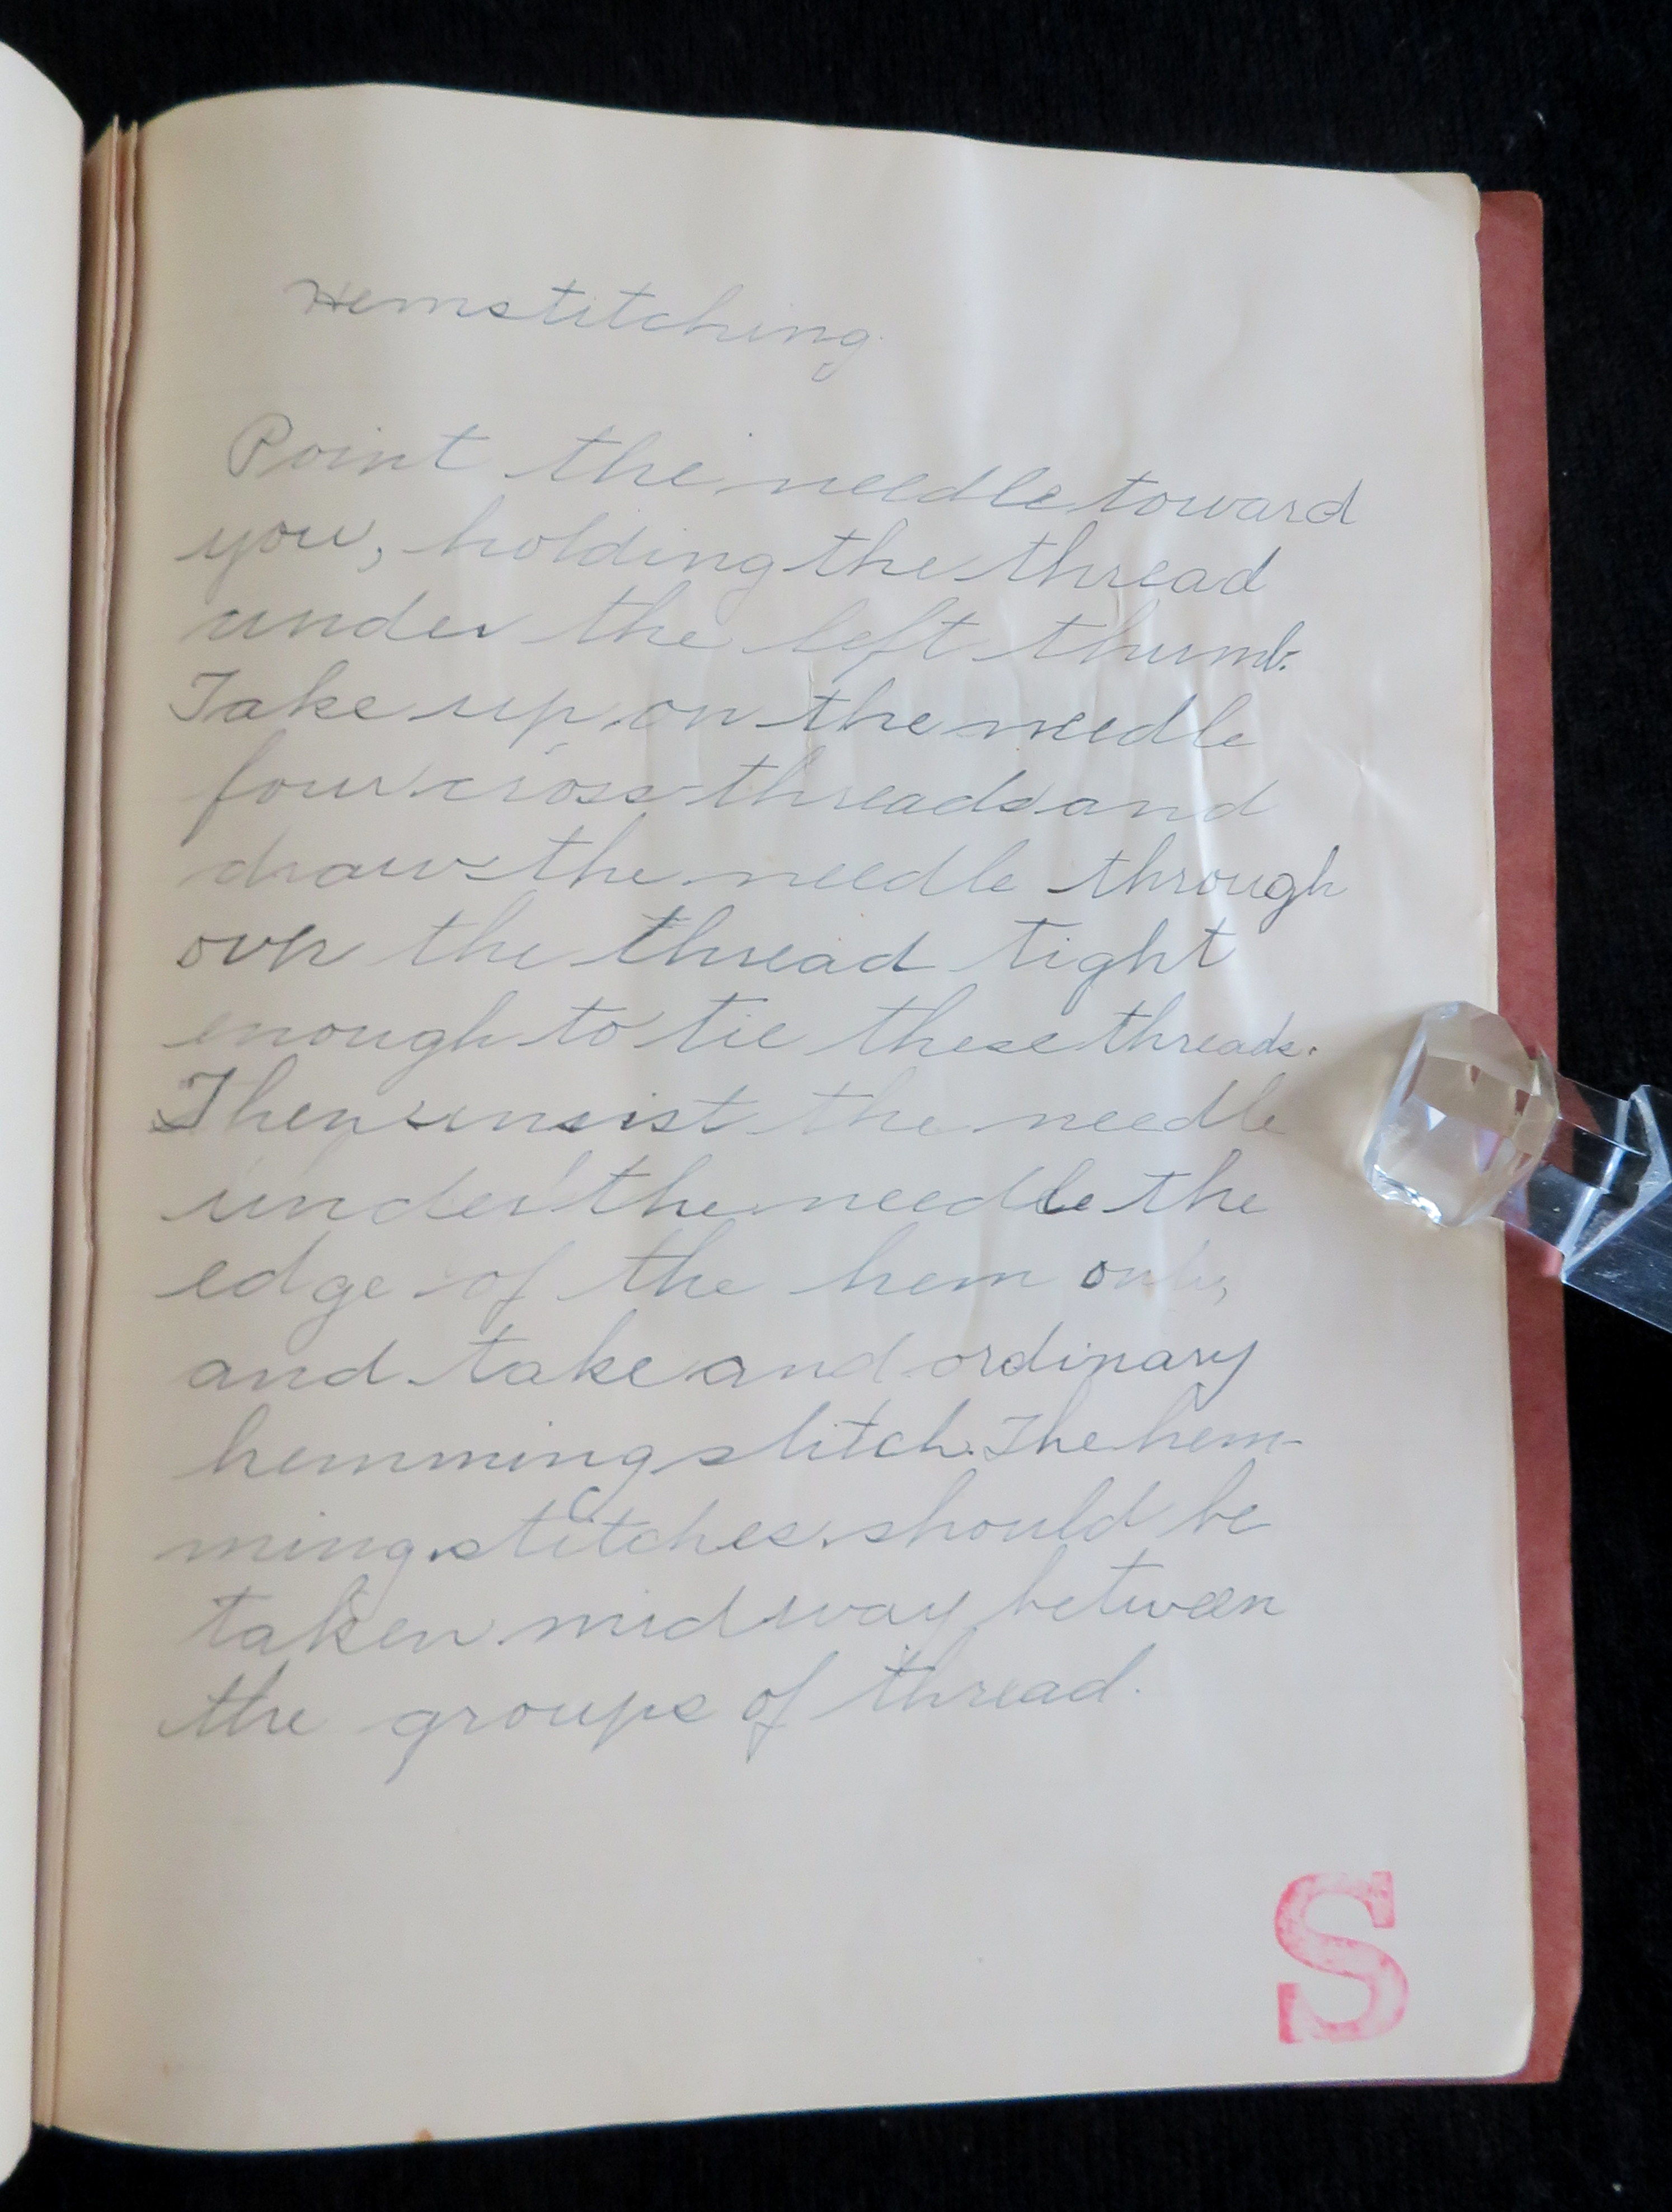 Hemstitching
Point the needle toward
you, holding the thread
under the left thumb.
Take up on the needle
four cross threads and
draw the needle through
over the thread tight
enough to tie these threads.
Then insist the needle
under the needle the
edge of the hem only,
and take and ordinary
hemming stitch. The hem-
ming stitches should be
taken midway between
the groups of thread.
S